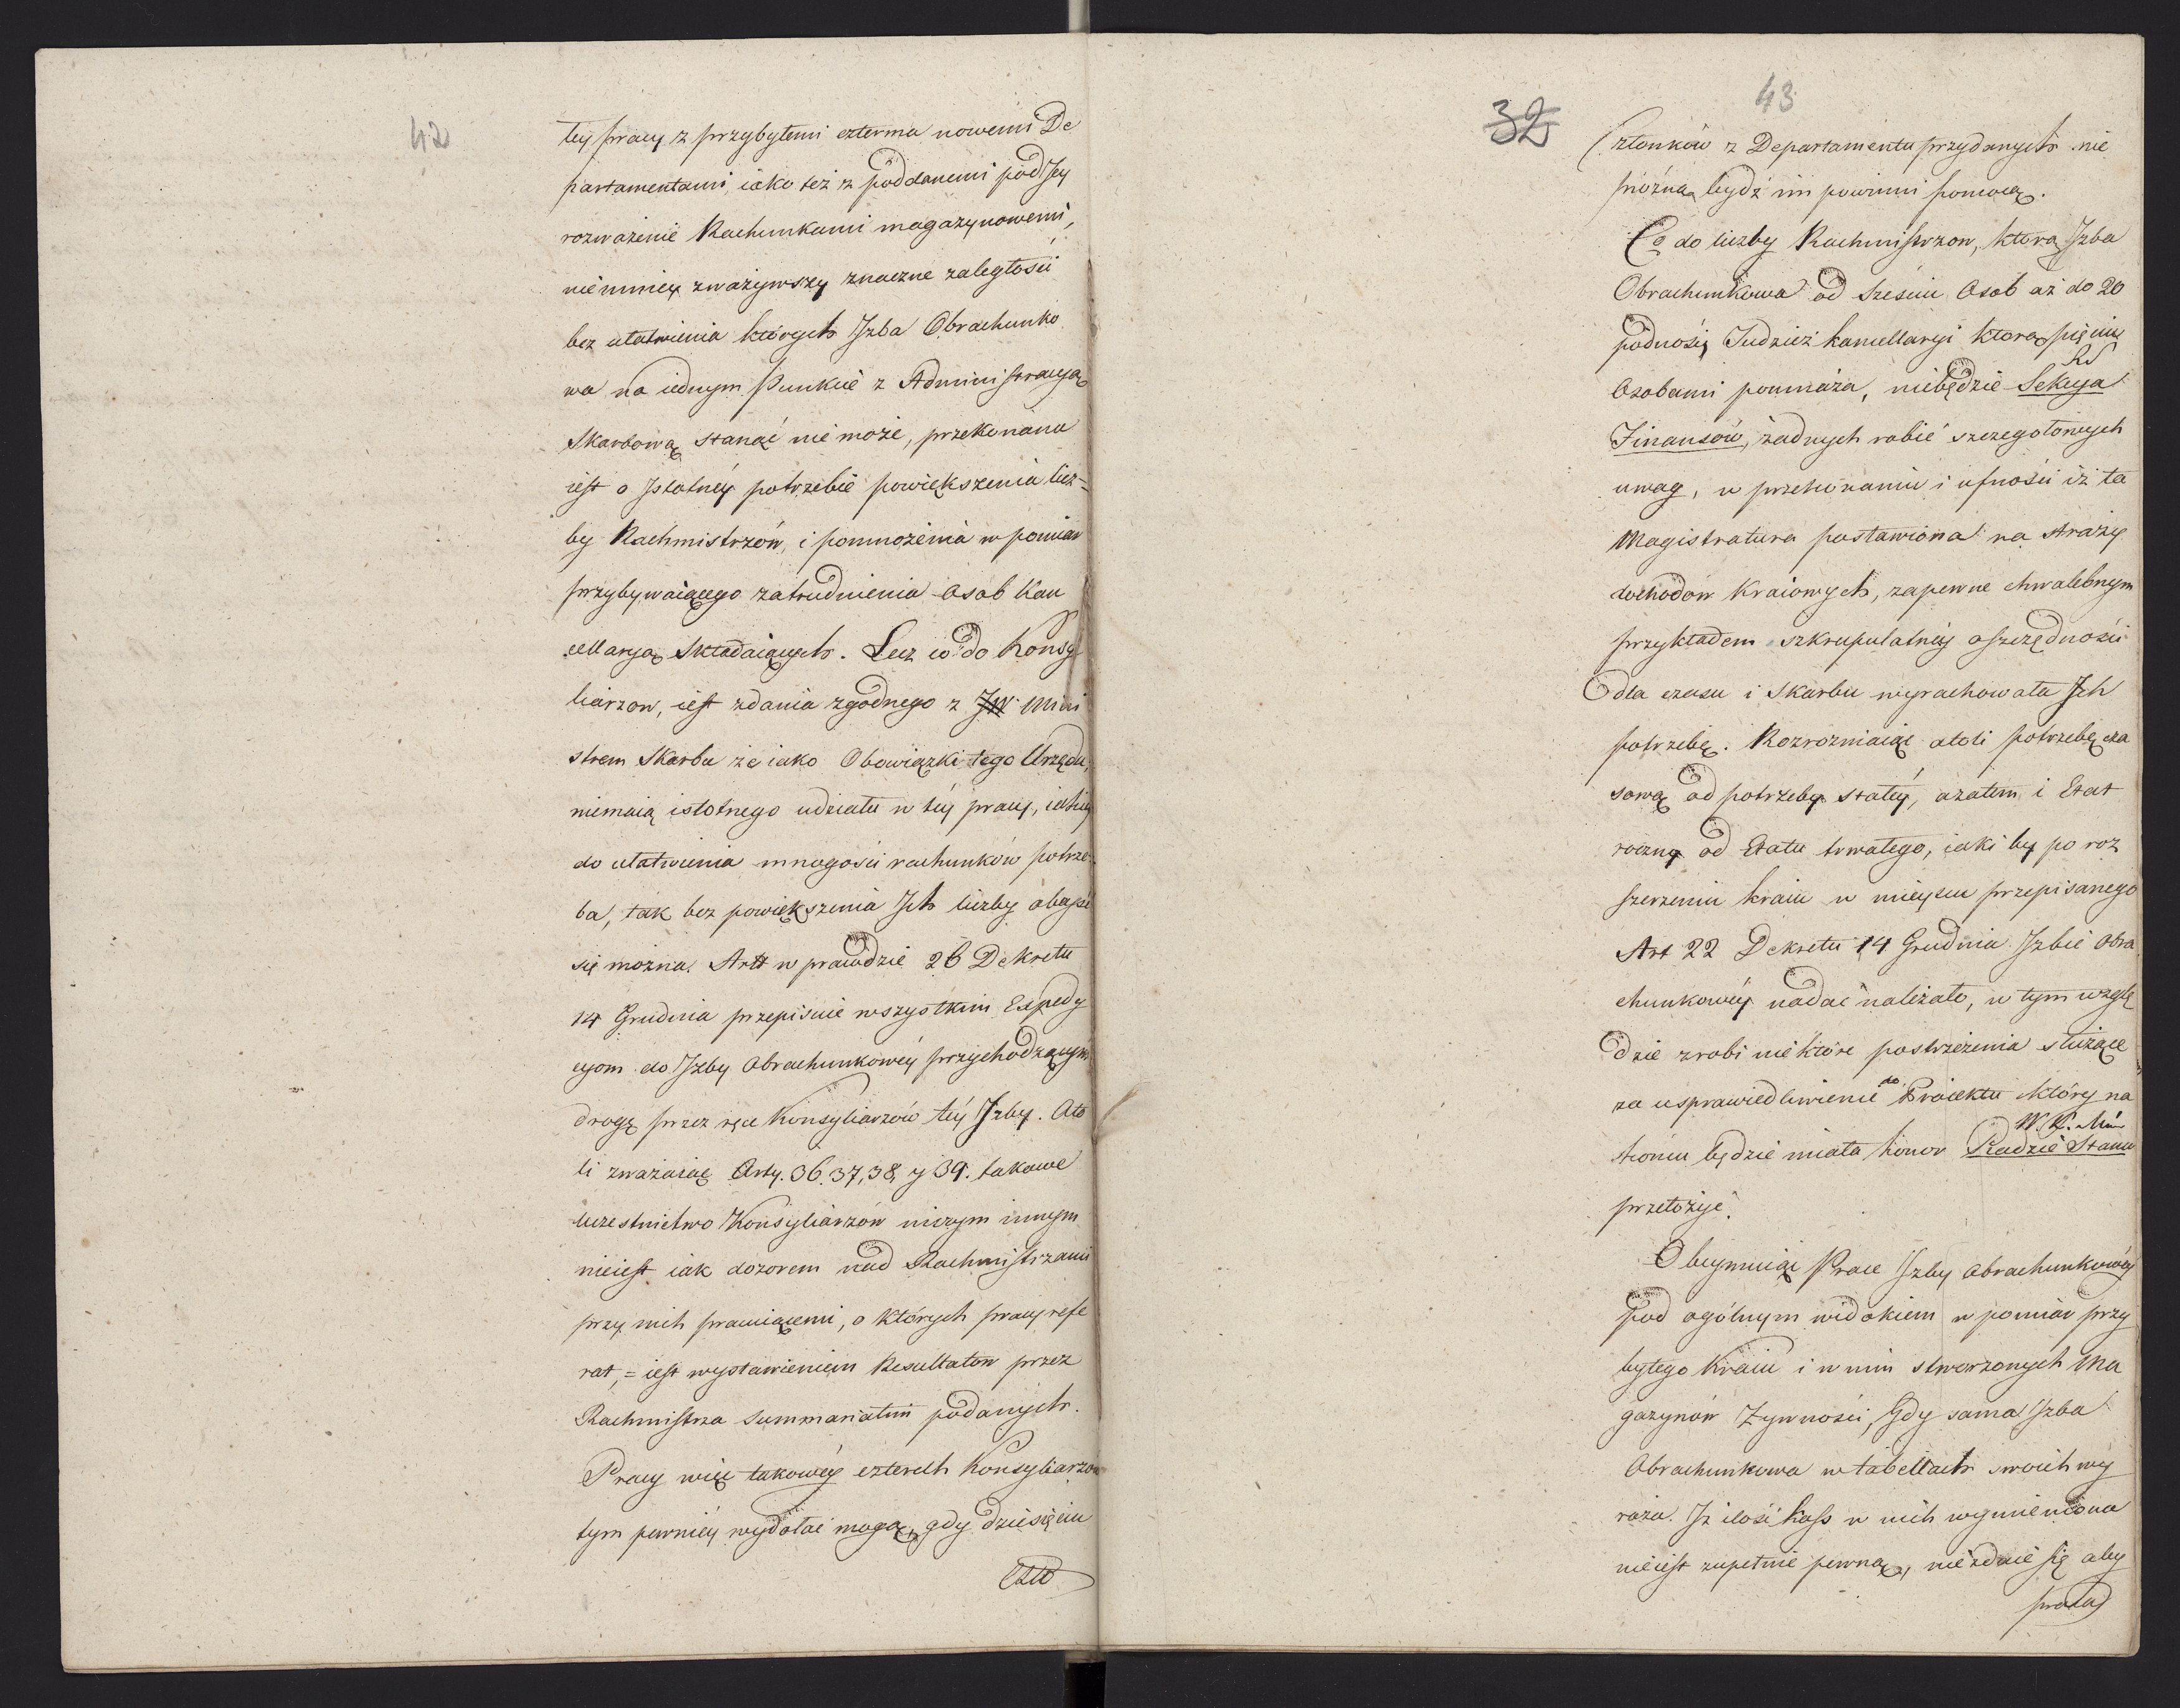 42
tey pracy z przybyłemi czterma nowemi De
partamentami, iako też z poddanemi pod Jey
rozważenie Rachunkami magazynowemi,
niemniey zważywszy znaczne zaległości
bez ułatwienia których Jzba Obrachunko
wa na iednym Punkcie z Administracyą
Skarbową stanąć nie może, przekonana
iest o Jstotney potrzebie powiększenia licz=
by Rachmistrzów, i pomnożenia w pomiar
przybywaiącego zatrudnienia Osob Kan
cellaryą składaiących. Lecz co do Konsy
liarzow, iest zdania zgodnego z JW Mini
strem Skarbu że iako Obowiązki tego Urzędu,
niemaią istotnego udziału w tey pracy, iakiey
do ułatwienia mnogości rachunków potrze
ba, tak bez powiększenia Jch liczby obeyść
się można. Artt wprawdzie 26 Dekretu
14 Grudnia przepisuie wszystkim Expedy
cyom do Jzby Obrachunkowey przychodzącym
drogę przez ręce Konsyliarzów tey Jzby. Ato
li zważaiąc Arty. 36. 37, 38, y 39. takowe
uczestnictwo Konsyliarzów niczym innym
nieiest iak dozorem nad Rachmistrzami
przy nich pracuiącemi, o których pracy refe
rat, = iest wystawieniem Resultatow przez
Rachmistrza summariatim podanych.
Pracy więc takowey czterech Konsyliarzów
tym pewniey wydołać mogą, gdy dziesięciu
Czło
32
43
Członków z Departamentu przydanych nie
próżną bydź im powinni pomocą.
Co do liczby Rachmistrzow, którą Jzba
Obrachunkowa od Sześciu Osob aż do 20
podnosi, Tudzież kancellaryi którą pięciu
Osobami pomnaża, niebędzie Sekcya
Finansów, żadnych robić szczegołowych
uwag, w przekonaniu i ufności iż ta
Magistratura postawiona na straży
dochodow Kraiowych, zapewne chwalebnym
przykładem szkrupulatney oszczędności
dla czasu i Skarbu wyrachowała Jch
potrzebę. Rozrozniaiąc atoli potrzebę cza
sową od potrzeby stałey, a zatem i Etat
roczny od Etatu trwałego, iaki by po roz
szerzeniu kraiu w mieyscu przepisanego
Art 22 Dekretu 14 Grudnia Jzbie Obra
chunkowey nadać należało, w tym wzglę
dzie zrobi niektóre postrzeżenia służące
za usprawiedliwienie do Proiektu który na
końcu będzie miała honor Radzie Stanu
przełożyć.
Obeymuiąc Prace Jzby Obrachunkowey
pod ogólnym widokiem w pomiar przy
byłego Kraiu i w nim stworzonych Ma
gazynów Żywności, Gdy sama Jzba
Obrachunkowa w tabellach swoich wy
raża. Jż ilość kass w nich wymieniona
nieiest zupełnie pewną, niezdaie się aby
praca